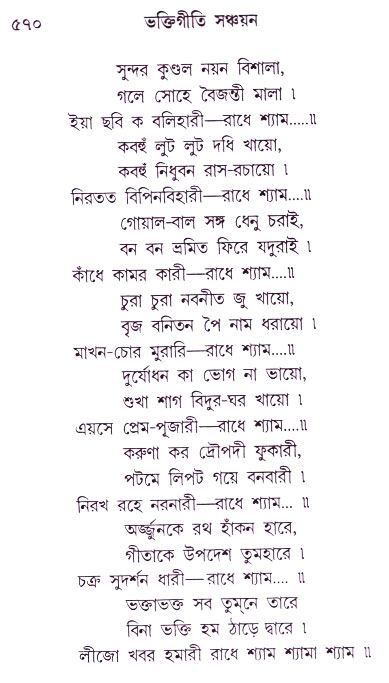 ৫৭০ ভক্তিগীতি সঞ্চয়ন
সুন্দর কুণ্ডল নয়ন বিশালা,
গলে সোহে বৈজন্তী মালা ।
ইয়া ছবি ক বলিহারী—রাধে শ্যাম.....॥
কবহুঁ লুট লুট দধি খায়ো,
কবহুঁ নিধুবন রাস-রচায়ো ।
নিরতত বিপিনবিহারী—রাধে শ্যাম....॥
গোয়াল-বাল সঙ্গ ধেনু চরাই,
বন বন ভ্রমিত ফিরে যদুরাই ।
কাঁধে কামর কারী—রাধে শ্যাম....॥
চুরা চুরা নবনীত জু খায়ো,
বৃজ বনিতন পৈ নাম ধরায়ো ।
মাখন-চোর মুরারি—রাধে শ্যাম....॥
দুর্যোধন কা ভোগ না ভায়ো,
শুখা শাগ বিদুর-ঘর খায়ো ।
এয়সে প্রেম-পূজারী—রাধে শ্যাম....॥
করুণা কর দ্রৌপদী ফুকারী,
পটমে লিপট গয়ে বনবারী ।
নিরখ রহে নরনারী—রাধে শ্যাম... ॥
অর্জ্জুনকে রথ হাঁকন হারে,
গীতাকে উপদেশ তুমহারে ।
চক্র সুদর্শন ধারী—রাধে শ্যাম.... ॥
ভক্তাভক্ত সব তুম্‌নে তারে
বিনা ভক্তি হম ঠাড়ে দ্বারে ।
লীজো খবর হমারী রাধে শ্যাম শ্যামা শ্যাম ॥